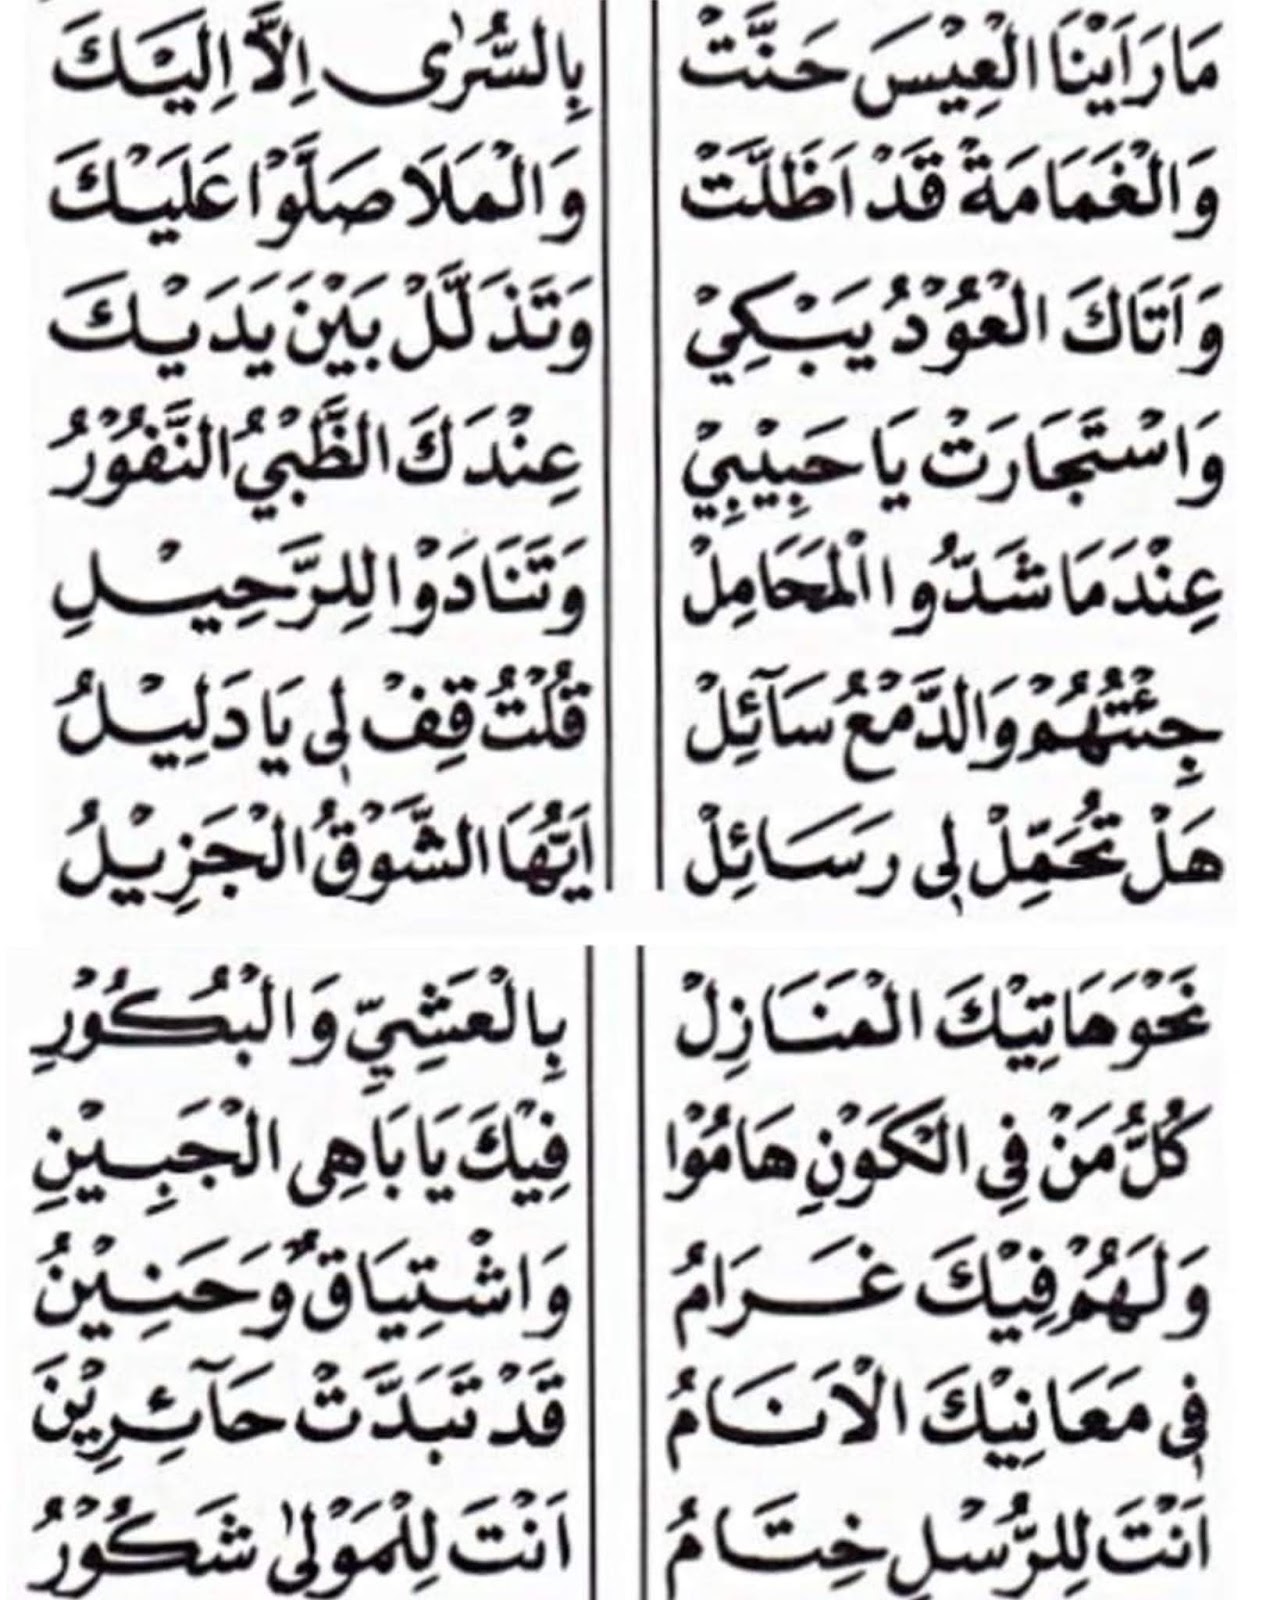 مَا رَاَيْنَا الْعِيْسَ حَنَّتْ بِالسُّرٰى اِلاَّ اِلَيْكَ
وَالْغَمَامَةْ قَدْ اَظَلَّتْ وَالْمَلَا صَلَّوْا عَلَيْكَ
وَاَتَاكَ الْعُوْدُ يَبْكِيْ وَتَذَلَّلْ بَيْنَ يَدَيْكَ
وَاسْتَجَارَتْ يَا حَبِيْبِيْ عِنْدَكَ الظَّبْيُ النَّفُوْرُ
عِنْدَمَا شَدُّوا الْمَحَامِلْ وَتَنَادَوْا لِلرَّحِيْلِ
جِئْتُهُمْ وَالدَّمْعُ سَآئِلْ قُلْتُ قِفْ لِى يَا دَلِيْلُ
هَلْ تُحَمِّلْ لِى رَسَائِلْ اَيُّهَا الشَّوْقُ الْجَزِيْلُ
نَحْوَ هَاتِيْكَ الْمَنَازِلْ بِالْعَشِيِّ وَالْبُكُوْرِ
كُلُّ مَنْ فِى الْكَوْنِ هَامُوْا فِيْكَ يَا بَاهِى الْجَبِيْنِ
وَلَهُمْ فِيْكَ غَرَامُ وَاشْتِيَاقٌ وَحَنِيْنُ
فِى مَعَانِيْكَ الْاَنَامُ قَدْ تَبَدَّتْ حَآئِرِيْنَ
اَنْتَ لِلرُّسْلِ خِتَامُ اَنْتَ لِلْمَوْلٰى شَكُوْرُ